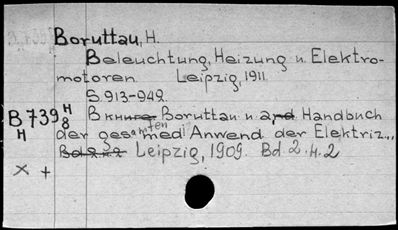 Boruttau, H.
Beleuchtung, Heizung u. Elektro-
motoren. Leipzig, 1911.
S. 913-942.
В книге Boruttau u a, Handbuch
B 739 H/8
H
der gesamten medi Anwend. der Elektriz.,
Leipzig, 1909. Bd. 2. H. 2
× +